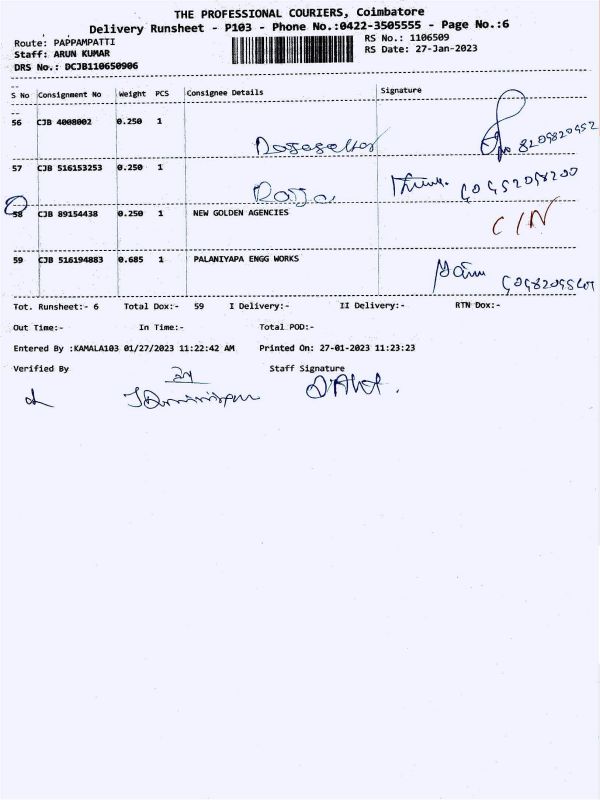 THE PROFESSIONAL COURIERS, Coimbatore
Delivery Runsheet - P103 - Phone No.:0422-3505555 - Page No.:6
Route: PAPPAMPATTI
RS No.: 1106509
Staff: ARUN KUMAR
RS Date: 27-Jan-2023
DRS No.: DCJB110650906
S No Consignment No Weight PCS Consignee Details Signature
56 CJB 4008002 0.250 1
57 CJB 516153253 0.250 1
58 CJB 89154438 0.250 1 NEW GOLDEN AGENCIES
C/N
59 CJB 516194883 0.685 1 PALANIYAPA ENGG WORKS
Tot. Runsheet:- 6 Total Dox:- 59 I Delivery:- II Delivery:- RTN Dox:-
Out Time:- In Time:- Total POD:-
Entered By :KAMALA103 01/27/2023 11:22:42 AM Printed On: 27-01-2023 11:23:23
Verified By Staff Signature